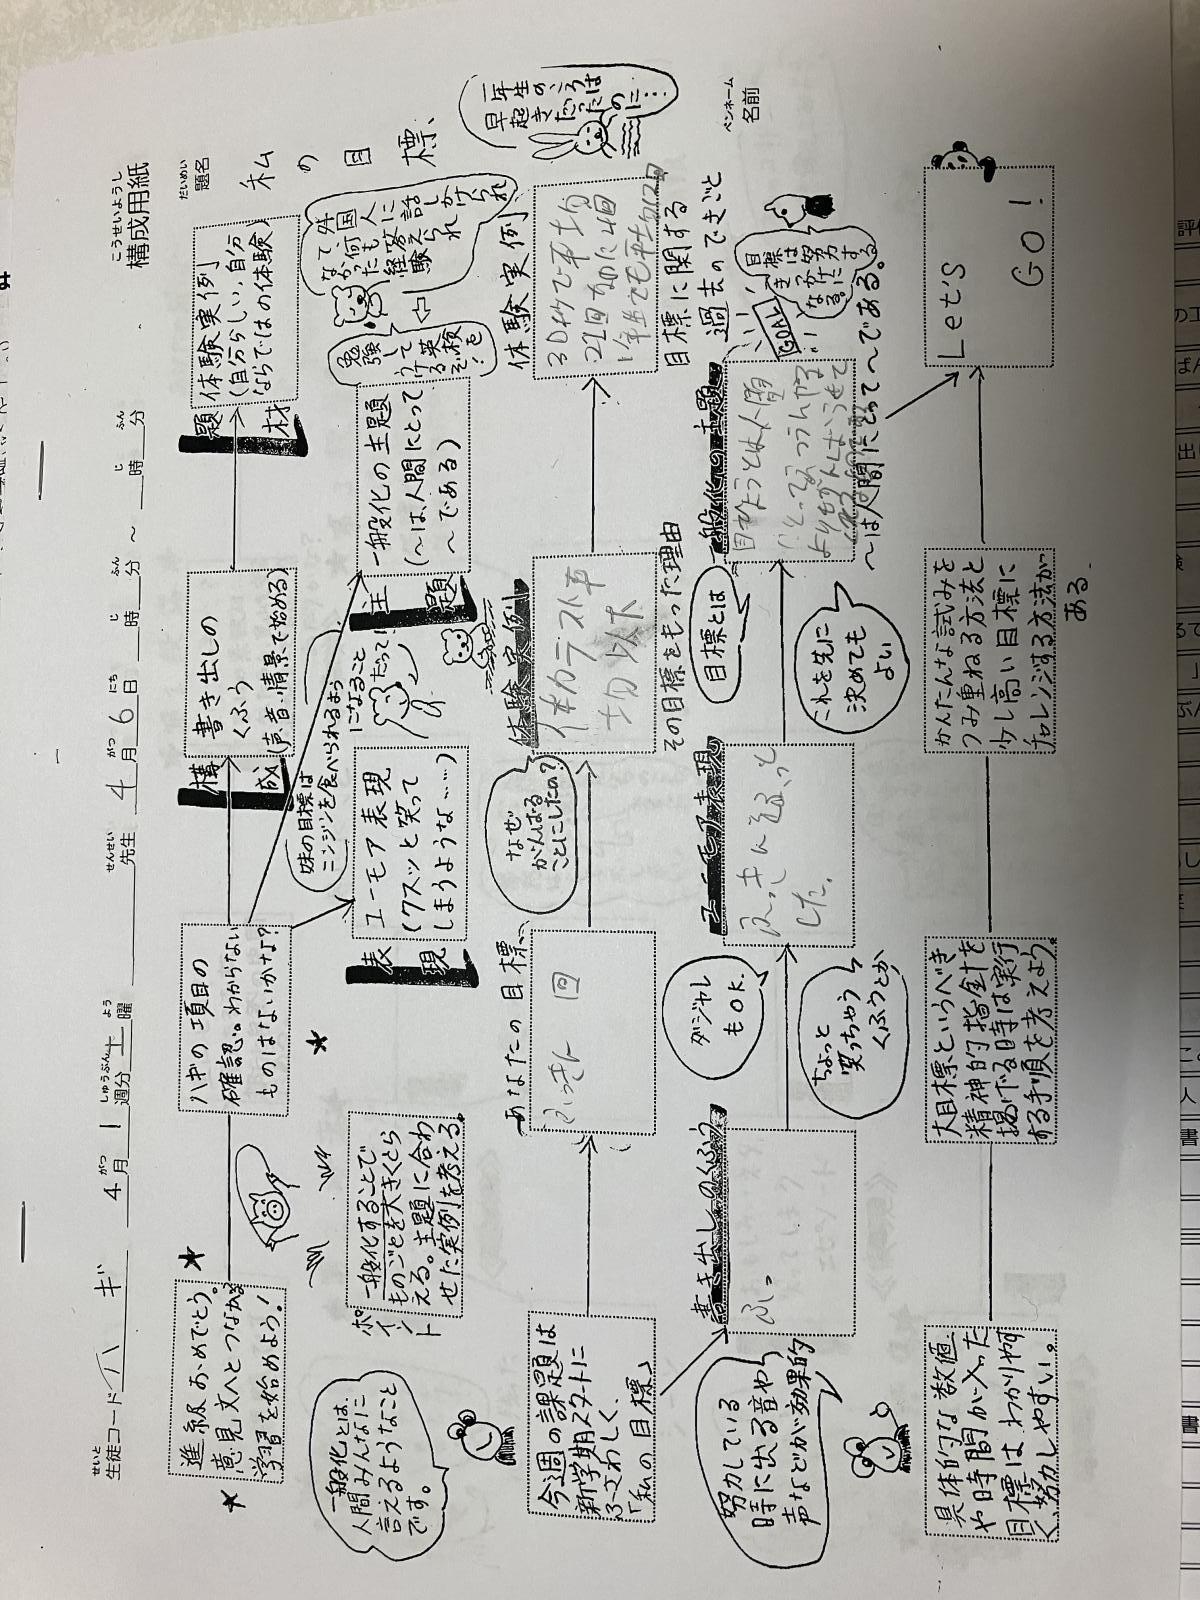 こうせいようし
構成用紙
せいと
生徒コード ハギ 4月1週分土曜 先生 4月6日 時 分 ~ 時 分
だいめい
題名
私の目標、
ペンネーム
名前
進級おめでとう。
意見文へとつなかる
学習を始めよう!
ハギの項目の
確認。わからない
ものはないかな?
構成
書き出しの
くふう
(声・音・情景で始める)
題材
体験実例
(自分らしい,自分
ならではの体験)
一般化とは、
人間みんなに
言えるようなこと
です。
ポイント
一般化することで
ものごとを大きくとら
える。主題に合わ
せた実例を考える。
表現
ユーモア表現
(クスッと笑って
しまうような……)
妹の目標は
ニンジンを食べられるよう
になること
だって!
主題
一般化の主題
(~は、人間にとって
~である)
勉強して
うける英検
ぞ!を
外国人に
話しかけられ
て何も答えられ
なかった経験
一年生のころは
早起きだった
のに…
今週の課題は
新学期スタートに
ふさわしく、
「私の目標」
あなたの目標、
ふっきん 回
なぜ
がんばる
ことにしたの?
体験実例
体力テスト平
均以下
その目標をもった理由
体験実例
30秒で平均
22回なのに4回
1年生でも平均12回
目標に関する
過去のできごと
努力している
時に出る音や
声などが効果的
書き出しのくふう
ふっ
ちょっと
笑っちゃう
くふうとか
ダジャレ
もOK.
ユーモア表現
ふっきん
した。
目標とは
これを先に
決めても
よい
一般化の主題
目ひょうとは人間
~は人間にとって~である。
GOAL
目標は
努力する
きっかけに
なる。
具体的な数値
や時間が入った
目標は、わかりやす
く、努力しやすい。
大目標というべき
精神的指針を
掲げる時は実行
する手順を考えよう。
かんたんな試みを
つみ重ねる方法と
少し高い目標に
チャレンジする方法が
ある.
Let's
GO!